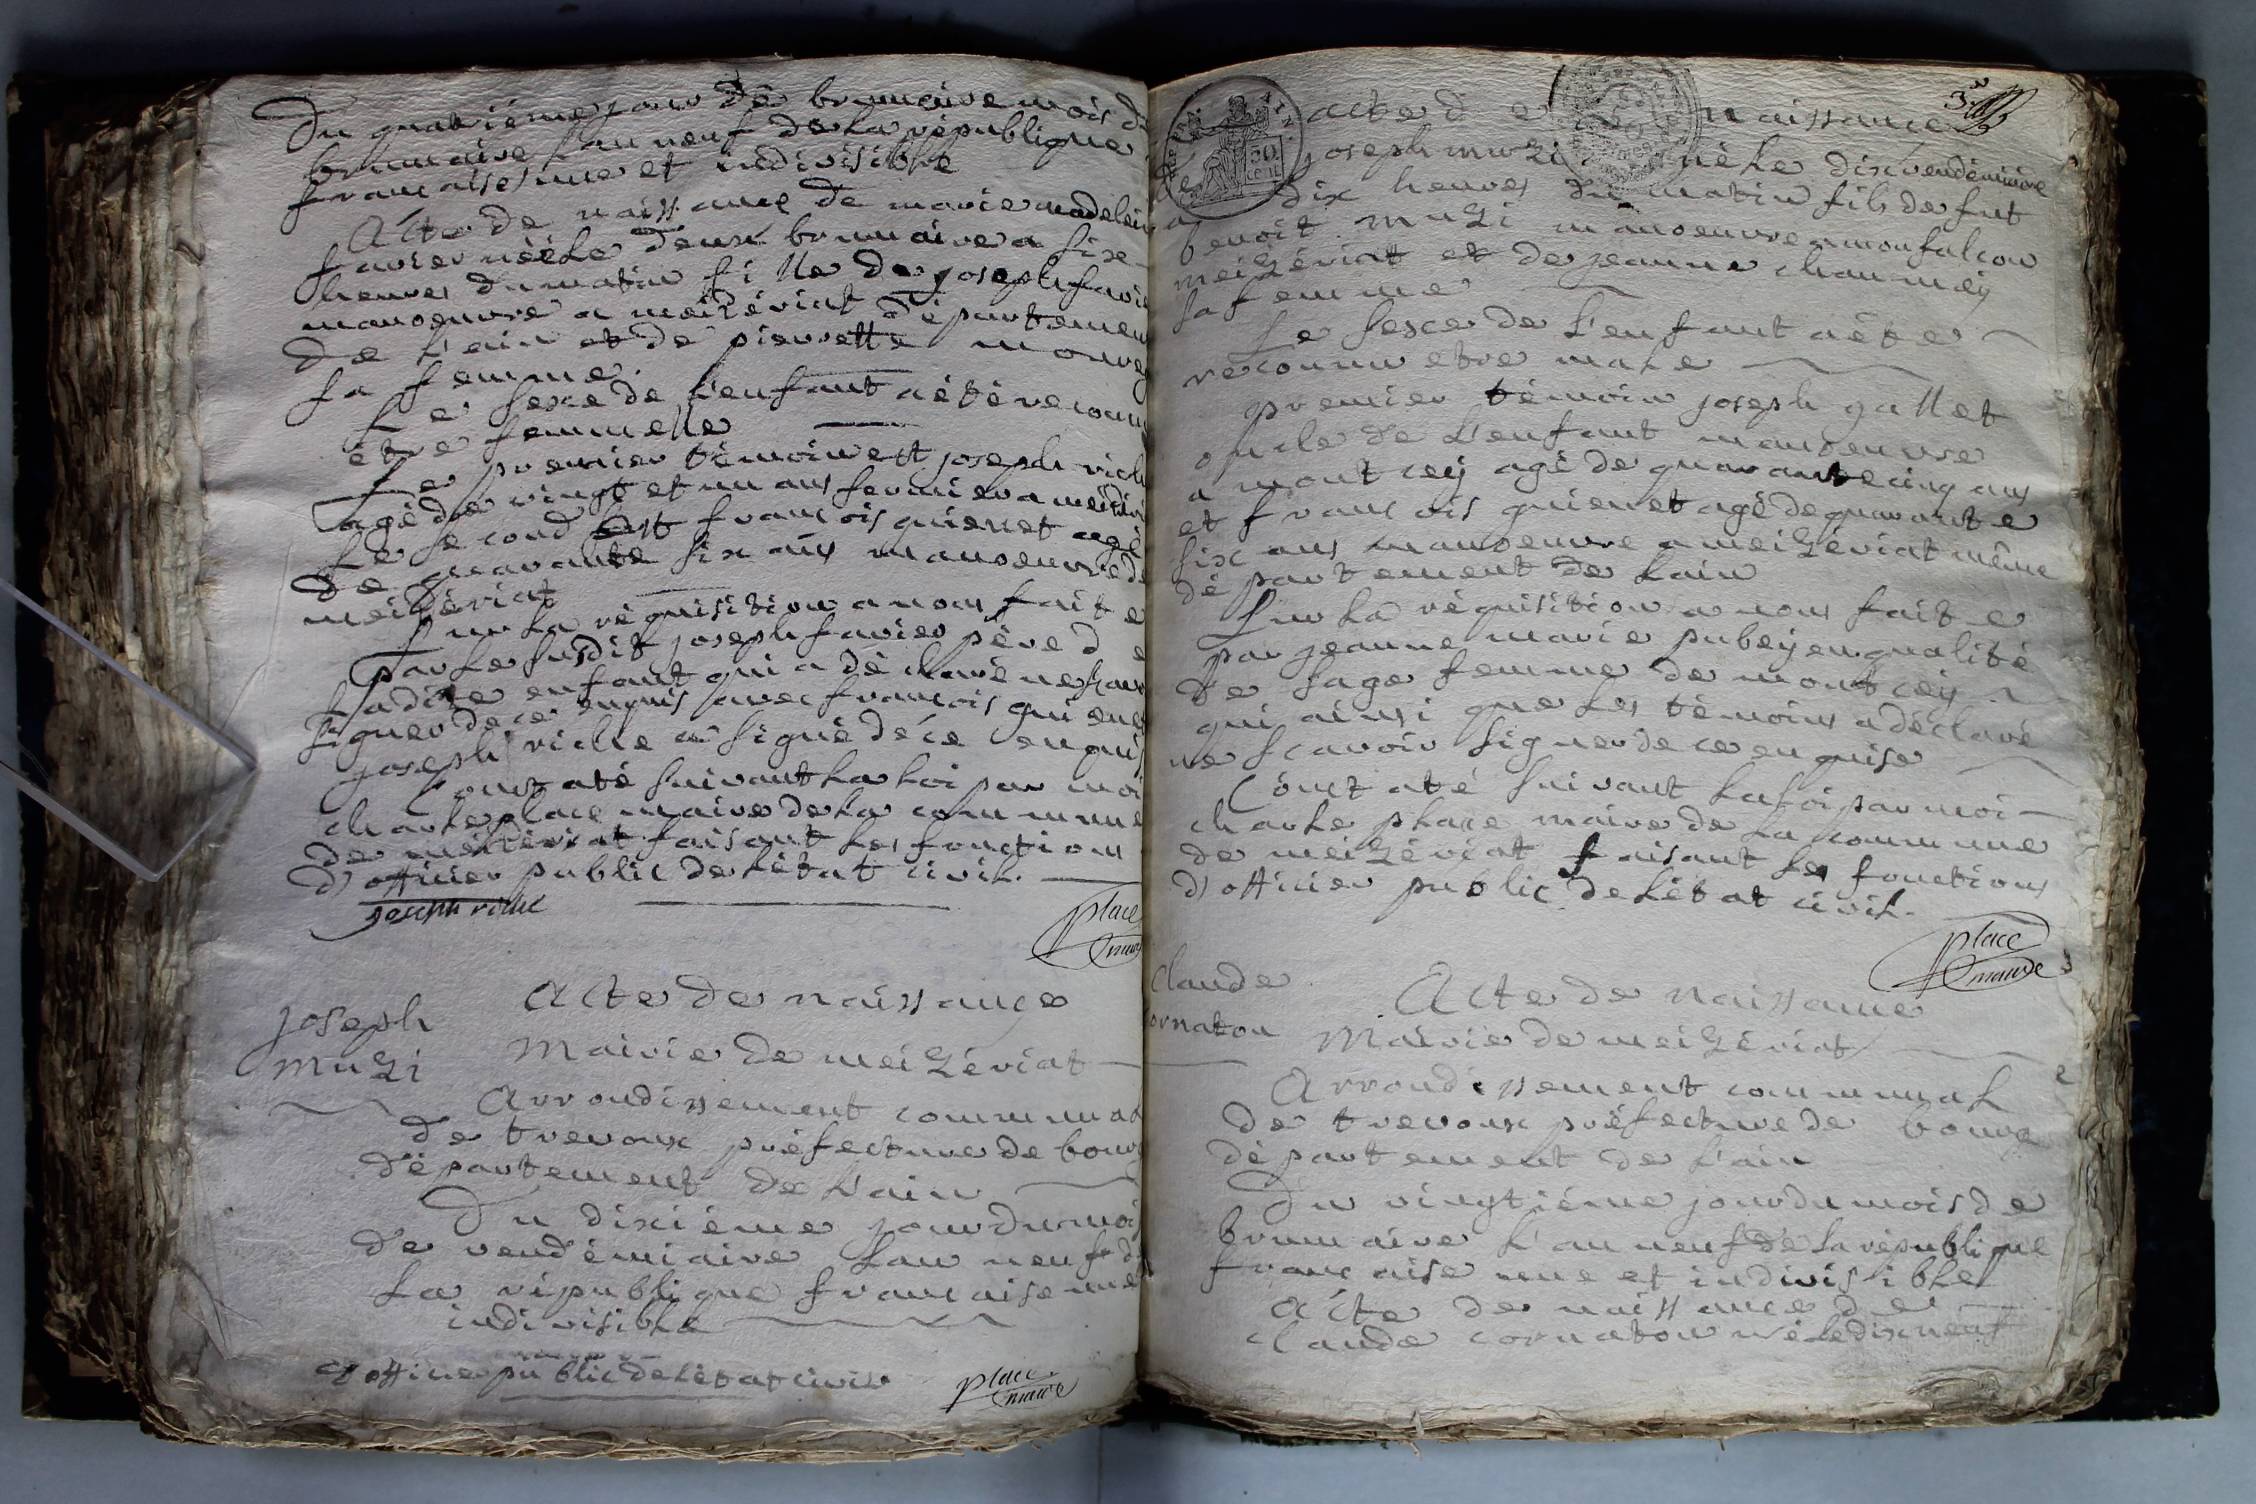 Du quatriéme jour de brumaire mois de
brumaire l'an neuf de la république
francaise une et indivisible
Acte de naissance de marie madelein
favier néé le deux brumaire a six
heures du matin fille de joseph favie
manoeuvre a meizériat département
de l'ain et de pierrette
sa femme.
Le sexe de l'enfant a été reconn
être femmelle
Le premier témoin est joseph riche
agé de vingt et un ans fermier a meizéri
Le second est francois quienet agé
de quarante six ans manoeuvre de
meizériat
Sur la réquisition a nous faite
par le susdit joseph favier pére de
ladite enfant qui a déclaré ne scavo
signer de ce enquis avec francois quienet
joseph riche a signé de ce enquis
Constaté suivant la loi par moi
charle place maire de la commune
de meizériat faisant les fonctions
d'officier public de l'état civil.
joseph riche
place
maire
joseph
muzi
Acte de naissance
Mairie de meizériat
Arrondissement communal
de trevoux préfecture de bourg
département de l'ain
Du dixiéme jour du mois
de vendémiaire l'an neuf de
la république francaise une
indivisible
d'officier public de l'état civil
place
maire
3
REP FRA
50
cent
acte de naissance
joseph muzi né le dix vendémiaire
a dix heures du matin fils de fut
benoit muzi manoeuvre a monfalcon
meizériat et de jeanne chaumey
sa femme
Le sexe de l'enfant a été
reconnu etre male
premier témoin joseph gallet
oncle de l'enfant manoeuvre
a montcey agé de quarante cinq ans
et francois quienet agé de quarante
six ans manoeuvre a meizériat même
département de l'ain
Sur la réquisition a nous faite
par jeanne marie pubey en qualité
de sage femme de montcey
qui ainsi que les témoins a déclaré
ne scavoir signer de ce enquise
Constaté suivant la loi par moi
charle place maire de la commune
de meizériat faisant les fonctions
d'officier public de l'état civil.
place
maire
claude
cornaton
Acte de naissance
Mairie de meizériat
Arrondissement communal
de trevoux préfecture de bourg
département de l'ain
Du vingtiéme jour du mois de
brumaire l'an neuf de la république
francaise une et indivisible
Acte de naissance de
claude cornaton né le dix neuf